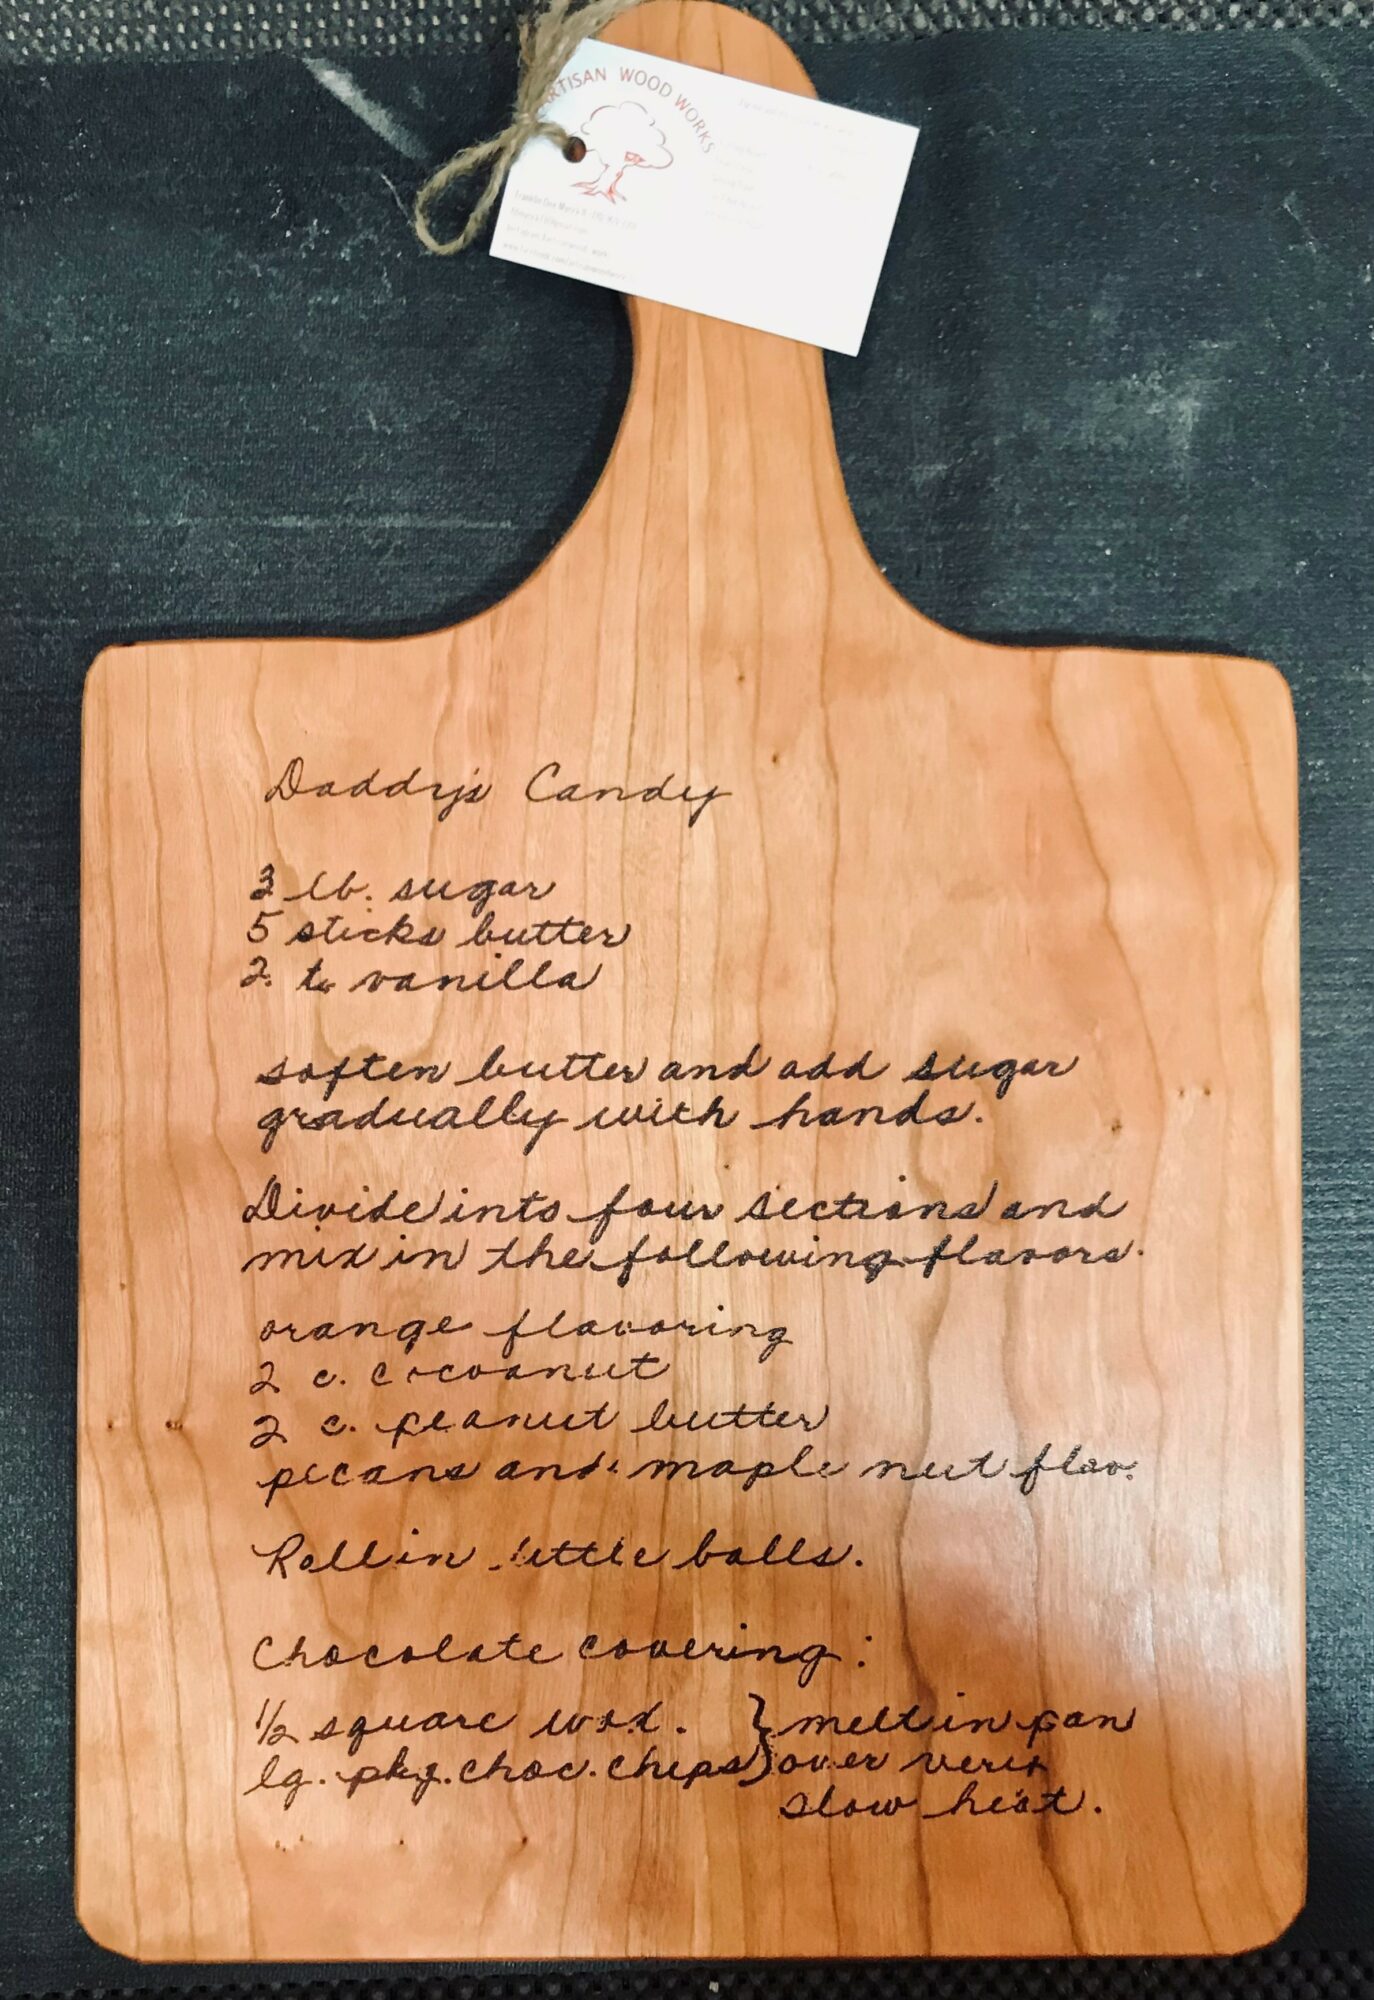 ARTISAN WOOD WORKS
Daddy's Candy
3 lb. sugar
5 sticks butter
2 t. vanilla
soften butter and add sugar
gradually with hands.
Divide into four sections and
mix in the following flavors.
orange flavoring
2 c. cocoanut
2 c. peanut butter
pecans and maple nut flav.
Roll in little balls.
Chocolate covering:
1/2 square wax. } melt in pan
lg. pkg. choc. chips } over very
slow heat.